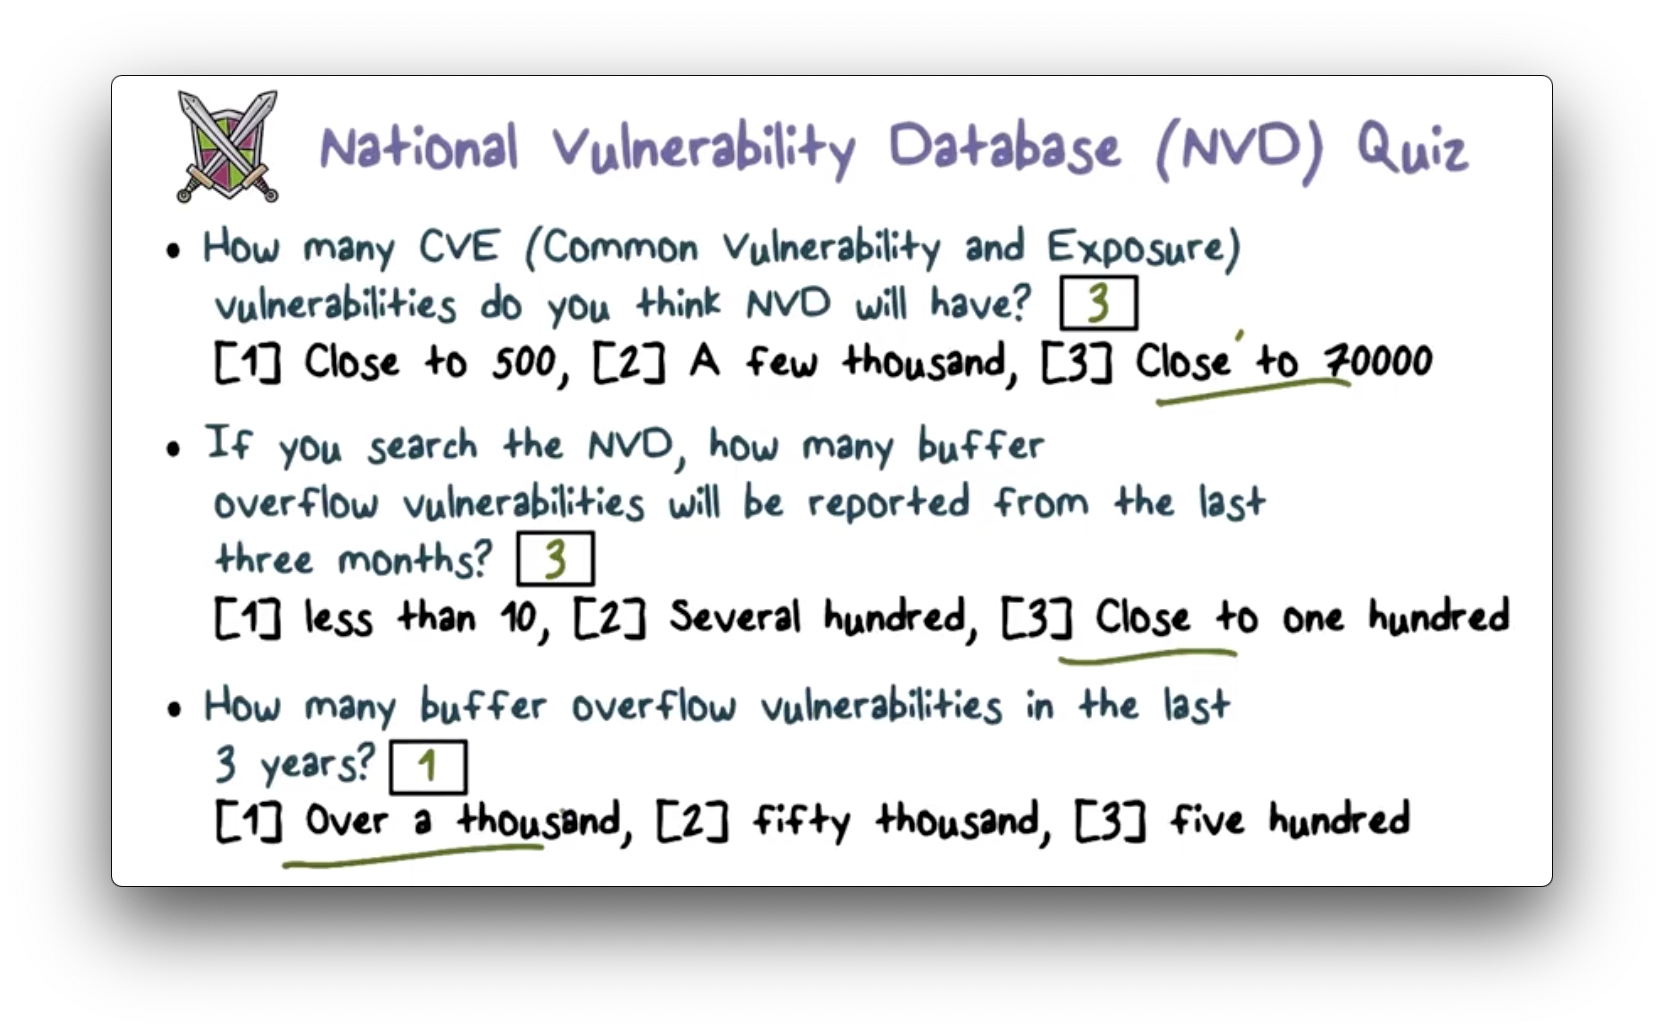 National Vulnerability Database (NVD) Quiz
• How many CVE (Common Vulnerability and Exposure)
vulnerabilities do you think NVD will have? 3
[1] Close to 500, [2] A few thousand, [3] Close to 70000
• If you search the NVD, how many buffer
overflow vulnerabilities will be reported from the last
three months? 3
[1] less than 10, [2] Several hundred, [3] Close to one hundred
• How many buffer overflow vulnerabilities in the last
3 years? 1
[1] Over a thousand, [2] fifty thousand, [3] five hundred